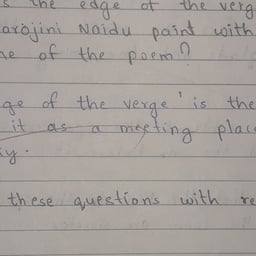 the edge of the verg
arojini Naidu paint with
of the poem?
ge of the verge' is the
it as a meeting plac
y.
these questions with re